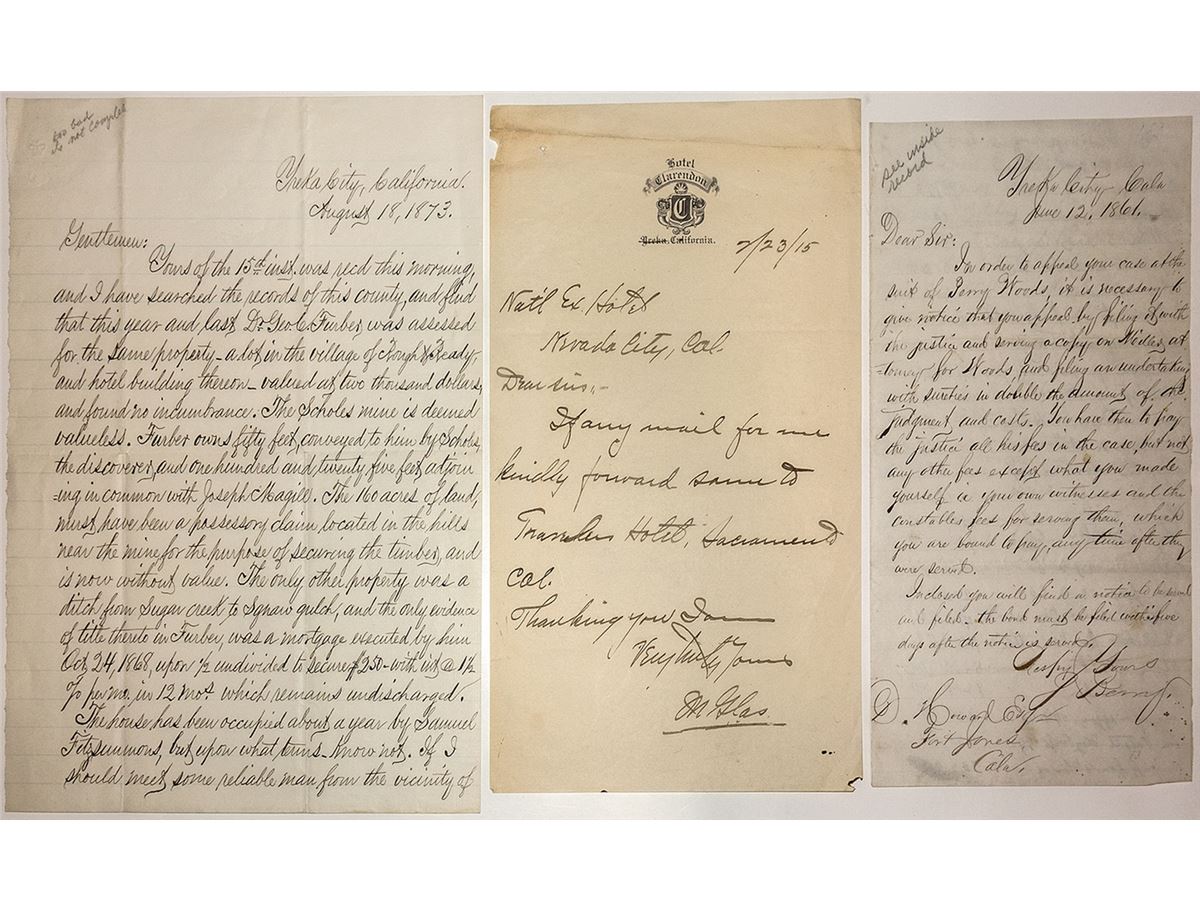 too bad
is not complete
Yreka City, California.
August 18, 1873.
Gentlemen:
Yours of the 15th inst. was recd this morning,
and I have searched the records of this county, and find
that this year and last, Dr. Geo. C. Furber, was assessed
for the same property - a lot in the village of Rough & Ready
and hotel building thereon - valued at two thousand dollars,
and found no incumbrance. The Scholes mine is deemed
valueless. Furber owns fifty feet, conveyed to him by Scholes,
the discoverer, and one hundred and twenty five feet, adjoin
=ing in common with Joseph Magill. The 160 acres of land,
must have been a possessory claim, located in the hills
near the mine for the purpose of securing the timber, and
is now without value. The only other property was a
ditch from Sugar creek to gulch, and the only evidence
of title thereto in Furber, was a mortgage executed by him
Oct 24, 1868, upon 1/2 undivided to secure $250 - with int @ 1 1/2
% per mo. in 12 mos. which remains undischarged.
The house has been occupied about a year by Samuel
Fitzsimmons, but upon what terms know not. If I
should meet some reliable man from the vicinity of
Hotel
Clarendon
C
Yreka, California.
7/23/15
Nat'l Ex. Hotel
Nevada City, Cal.
Dear sirs,-
If any mail for me
kindly forward same to
Travelers Hotel, Sacramento
Cal.
Thanking you I am
Very Truly Yours
see inside
record
Yreka City Cala
June 12. 1861.
Dear Sir:
In order to appeal your case at the
suit of Perry Woods, it is necessary to
give notice that you appeal by filing it with
the justice and serving a copy on at
=torney for Woods and filing an undertaking
with sureties in double the amount of the
judgment and costs. You have then to pay
the justice all his fees in the case, but not
any other fees except what you made
yourself ie your own witnesses and the
constables fees for serving them, which
you are bound to pay, any time after they
were served.
Inclosed you will find a notice to be served
and filed. the bond must be filed within five
days after the notice is served.
Respy Yours
Berry.
D. Howard Esq
Fort Jones
Cala.